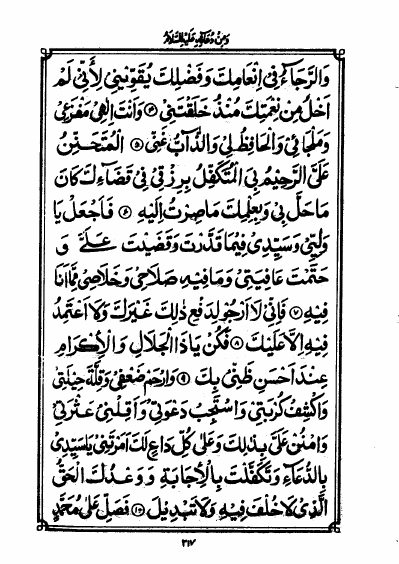 وَمِنْ دُعَائِهِ عَلَيْهِ السَّلَامُ
وَالرَّجَاءُ فِي اِنْعَامِكَ وَفَضْلِكَ يُقَوِّيْنِي لِأَنِّي لَمْ
اَخْلُ مِنْ نِعْمَتِكَ مُنْذُ خَلَقْتَنِي ﴿٤﴾ وَاَنْتَ اِلٰهِي مَفْزَعِي
وَمَلْجَائِي وَالْحَافِظُ لِي وَالذَّابُّ عَنِّي ﴿٥﴾ الْمُتَحَنِّنُ
عَلَيَّ الرَّحِيْمُ بِي الْمُتَكَفِّلُ بِرِزْقِي فِي قَضَاءِكَ كَانَ
مَا حَلَّ بِي وَبِعِلْمِكَ مَا صِرْتُ اِلَيْهِ ﴿٦﴾ فَاجْعَلْ يَا
وَلِيِّي وَسَيِّدِي فِيْمَا قَدَّرْتَ وَقَضَيْتَ عَلَيَّ وَ
حَتَمْتَ عَافِيَتِي وَمَا فِيْهِ صَلَاحِي وَخَلَاصِي مِمَّا اَنَا
فِيْهِ ﴿٧﴾ فَاِنِّي لَا اَرْجُو لِدَفْعِ ذٰلِكَ غَيْرَكَ وَلَا اَعْتَمِدُ
فِيْهِ اِلَّا عَلَيْكَ ﴿٨﴾ فَكُنْ يَا ذَا الْجَلَالِ وَالْاِكْرَامِ
عِنْدَ اَحْسَنِ ظَنِّي بِكَ ﴿٩﴾ وَارْحَمْ ضَعْفِي وَقِلَّةَ حِيْلَتِي
وَاكْشِفْ كُرْبَتِي وَاسْتَجِبْ دَعْوَتِي وَاَقِلْنِي عَثْرَتِي
وَامْنُنْ عَلَيَّ بِذٰلِكَ وَعَلٰى كُلِّ دَاعٍ لَكَ اَمَرْتَنِي يَا سَيِّدِي
بِالدُّعَاءِ وَتَكَفَّلْتَ بِالْاِجَابَةِ وَوَعْدُكَ الْحَقُّ
الَّذِي لَا خُلْفَ فِيْهِ وَلَا تَبْدِيْلَ ﴿١٠﴾ فَصَلِّ عَلٰى مُحَمَّدٍ
٣١٧